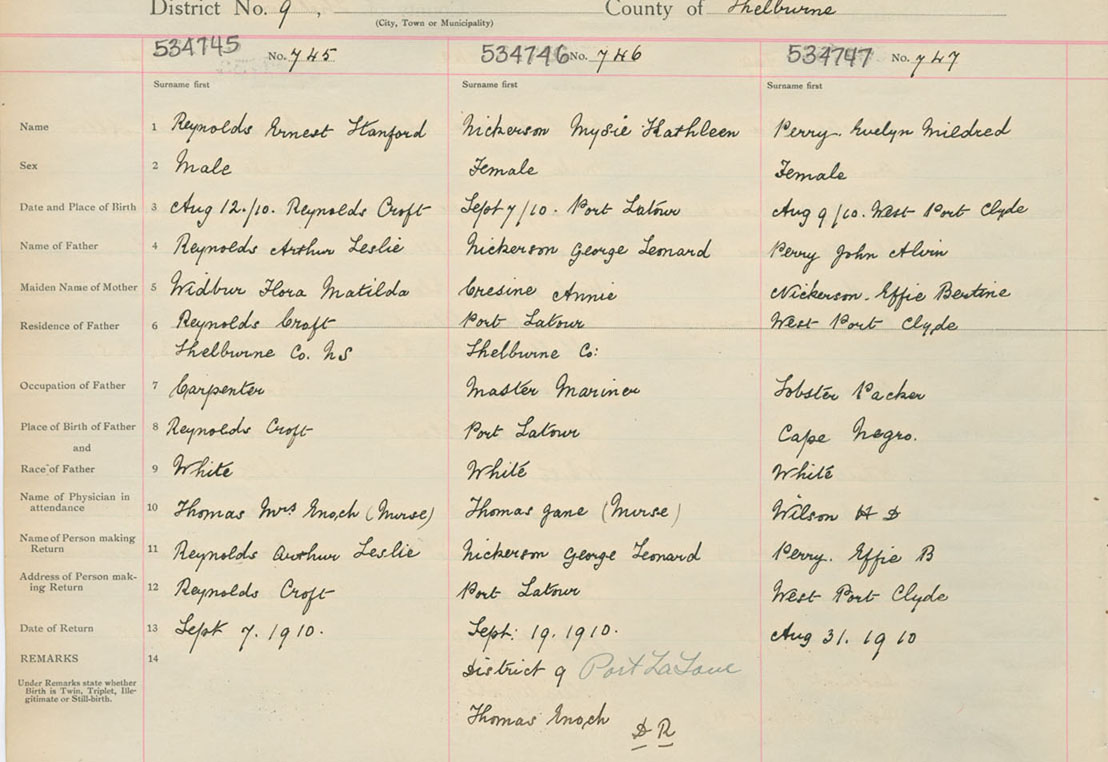 District No. 9, County of Shelburne
(City, Town or Municipality)
534745 No. 745 534746 No. 746 534747 No. 747
Surname first Surname first Surname first
Name 1 Reynolds Ernest Stanford Nickerson Mysie Kathleen Perry. Evelyn Mildred
Sex 2 Male Female Female
Date and Place of Birth 3 Aug 12./10. Reynolds Croft Sept 7/10. Port Latour Aug 9/10. West Port Clyde
Name of Father 4 Reynolds Arthur Leslie Nickerson George Leonard Perry John Alvin
Maiden Name of Mother 5 Widbur Flora Matilda Cresine Annie Nickerson. Effie Bertine
Residence of Father 6 Reynolds Croft Port Latour West Port Clyde
Shelburne Co. NS Shelburne Co:
Occupation of Father 7 Carpenter Master Mariner Lobster Packer
Place of Birth of Father 8 Reynolds Croft Port Latour Cape Negro.
and
Race of Father 9 White White White
Name of Physician in
attendance 10 Thomas Mrs Enoch (Nurse) Thomas Jane (Nurse) Wilson H D
Name of Person making
Return 11 Reynolds Arthur Leslie Nickerson George Leonard Perry. Effie B
Address of Person mak-
ing Return 12 Reynolds Croft Port Latour West Port Clyde
Date of Return 13 Sept 7. 1910. Sept: 19. 1910. Aug 31. 1910
REMARKS 14 District 9 Port La Tour
Under Remarks state whether
Birth is Twin, Triplet, Ille-
gitimate or Still-birth.
Thomas Enoch
D R